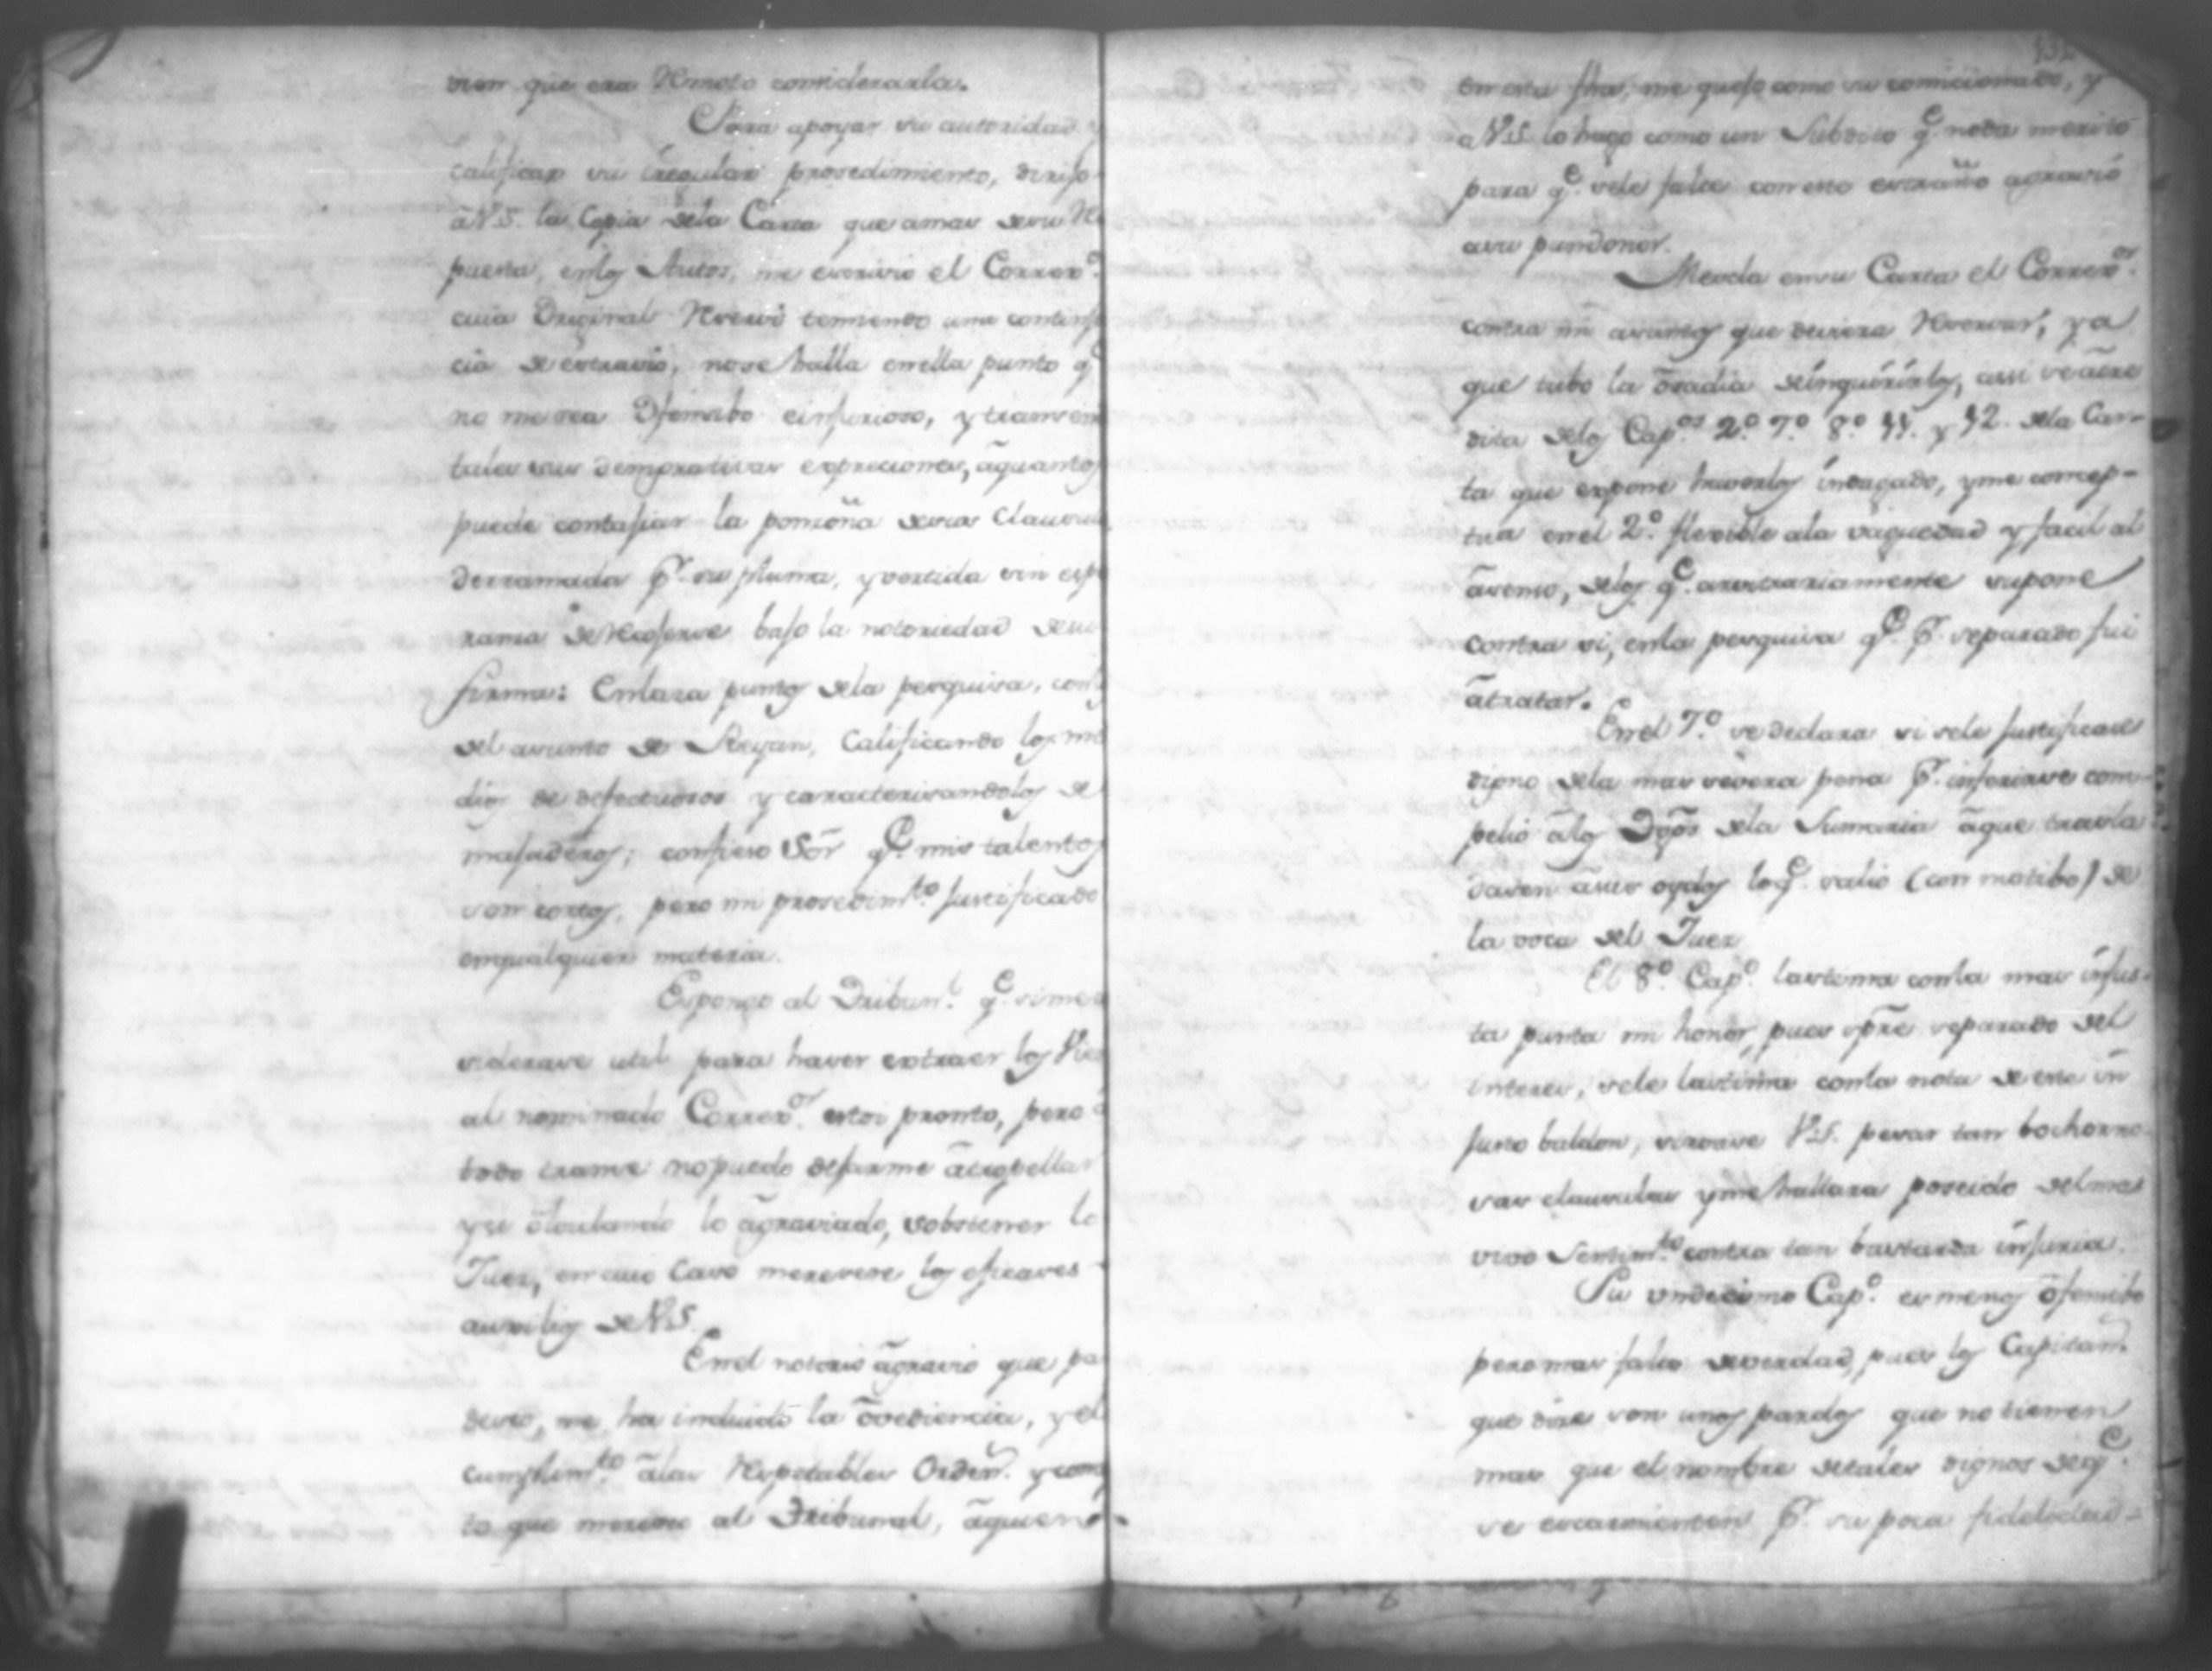 sion que era Remoto considerarla.
Para apoyar su autoridad y
calificar su irregular prosedimiento, dirijo
a V.S. la Copia dela Carta que amas desu Re
puesta, enlos Autos, me escrivio el Correxor.
cuia Original Reservó temiendo una continje
cia de extravio, nose halla enella punto qe
no me sea Ofensibo einjurioso, y
tales sus expreciones, âquantos
puede contajiar la ponsoña desus Clausulas
derramada Pr. su pluma, y vertida sin espe
ranza de Reserve bajo la notoriedad desu
firma: Enlaza puntos dela pesquisa, conlos
del asumto de Reyan, Calificando los me
dios de defectuosos y caracterisandolos de
majaderos; confieso Sōr qe. mis talentos
son cortos, pero mi prosedimto. justificado
enqualquier materia.
Expongo al Tribunl. qe. simeco
siderase util para haser extraer los
al nominado Correxor. estoi pronto, pero â
todo tranze nopuedo dejarme âtropellar
y si ôlvidando lo âgraviado, sobstener lo
Juez, encuio Caso meresere los eficases
auxilios deV.S.
Enel notorio âgravio que pa
desco, me ha induido la ôvediencia, y el
cumplimto. âlas Respetables Ordens. y
to que meresco al Tribunal, âquien
132
enesta fha, me quejo como su comicionado, y
a V.S. lo hago como un Subdito qe. noda merito
para qe. sele falte con este extraño agravió
asu pundonor.
Mescla ensu Carta el Correxor.
contra mi asumtos que deviera Reservar, ya
que tubo la ôsadia deinquirirlos, assi seâcre
dita delos Capos. 2o. 7o. 8o. 11. y 12. dela Car-
ta que expone haverlos indagado, yme concep-
tua enel 2o. flexible ala vaguedad y facil al
âsenso, delos qe. arvitrariamente supone
contra si, enla pesquisa qe. Pr. separado fui
âtratar.
Enel 7o. se declara si sele justificase
digno dela mas severa pena Pr. inferirse com-
pelió âlos Dgōs dela Sumaria âque trasla
dasen âsus oydos loqe. salió (con motibo) de
la voca del Juez
El 8o. Capo. lastima conla mas injus-
ta punta mi honor, pues spre separado del
interes, sele lastima conla nota de este in
justo baldon, sirvase V.S. pesar tan bochorno
sas clausulas yme hallara poseido delmas
vivo Sentimto. contra tan bastarda injuria.
Su undecimo Capo. es menos ôfensibo
pero mas falto deverdad, pues los Capitans.
que dize son unos pardos que no tienen
mas que el nombre detales dignos deqe.
se escarmienten Pr. su poca fidelidad-